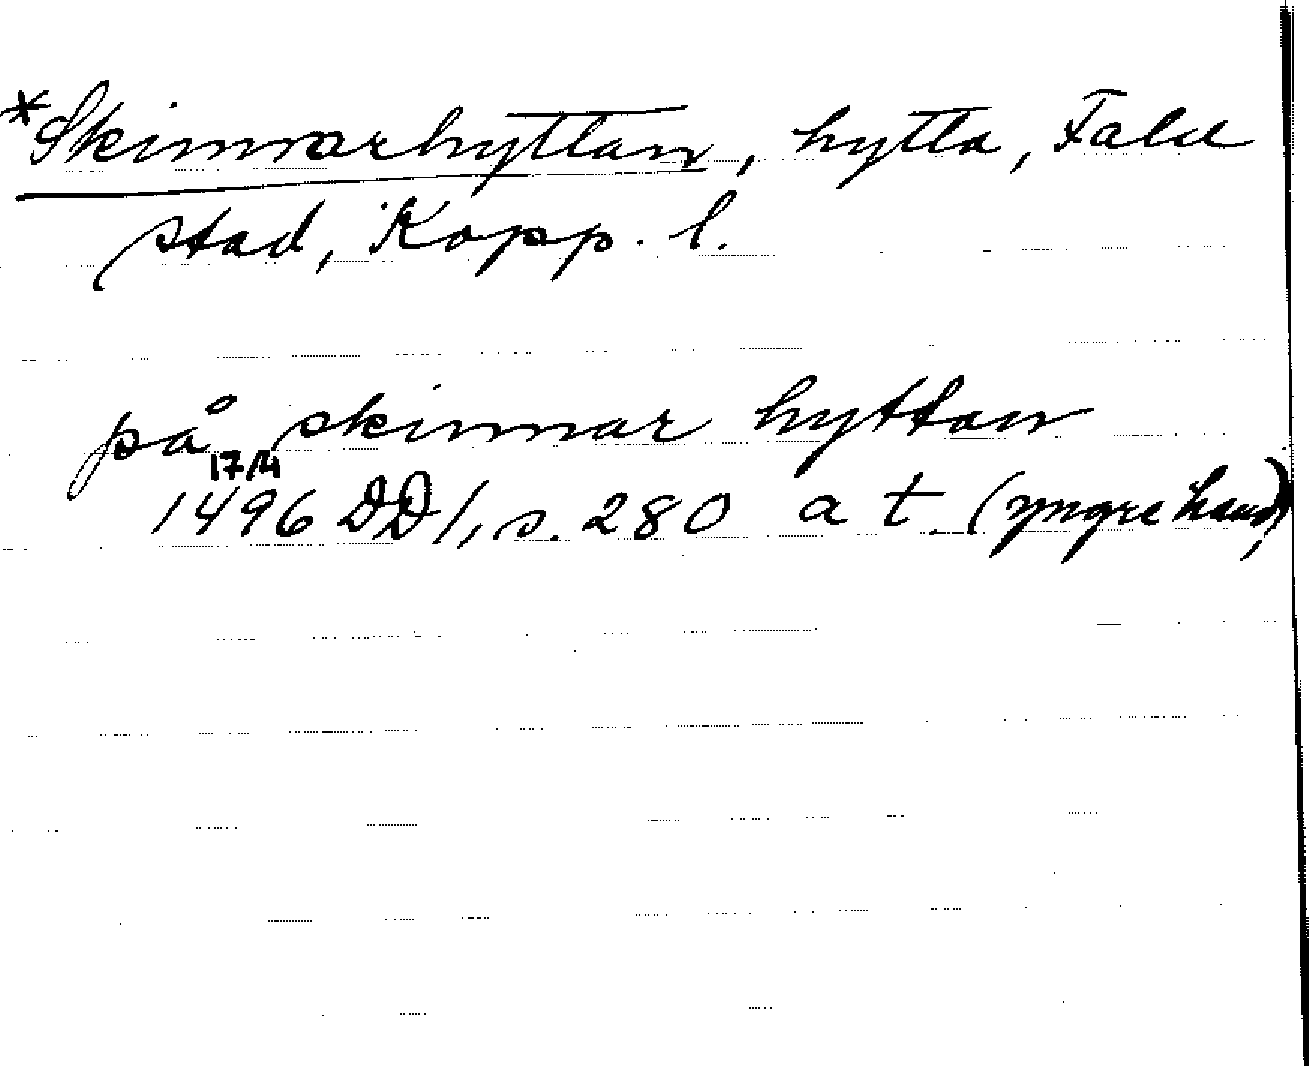 *Skinnarhyttan, hytta, Falu
stad, Kopp. l.
på skinnar hyttan
17/4
1496 DD 1, s. 280 a t (yngre hand)